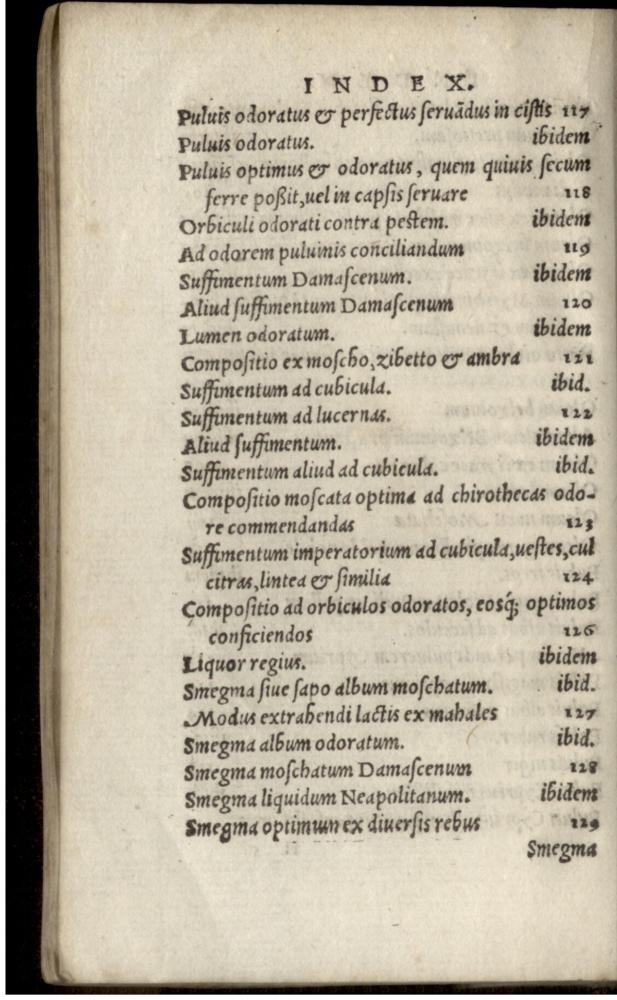 INDEX.
Puluis odoratus & perfectus seruãdus in cistis 117
Puluis odoratus. ibidem
Puluis optimus & odoratus, quem quiuis secum
ferre poßit, uel in capsis seruare 118
Orbiculi odorati contra pestem. ibidem
Ad odorem puluinis conciliandum 119
Suffimentum Damascenum. ibidem
Aliud suffimentum Damascenum 120
Lumen odoratum. ibidem
Compositio ex moscho, zibetto & ambra 121
Suffimentum ad cubicula. ibid.
Suffimentum ad lucernas. 122
Aliud suffimentum. ibidem
Suffimentum aliud ad cubicula. ibid.
Compositio moscata optima ad chirothecas odo-
re commendandas 123
Suffimentum imperatorium ad cubicula, uestes, cul
citras, lintea & similia 124
Compositio ad orbiculos odoratos, eosq́; optimos
conficiendos 126
Liquor regius. ibidem
Smegma siue sapo album moschatum. ibid.
Modus extrahendi lactis ex mahales 127
Smegma album odoratum. ibid.
Smegma moschatum Damascenum 128
Smegma liquidum Neapolitanum. ibidem
Smegma optimum ex diuersis rebus 129
Smegma